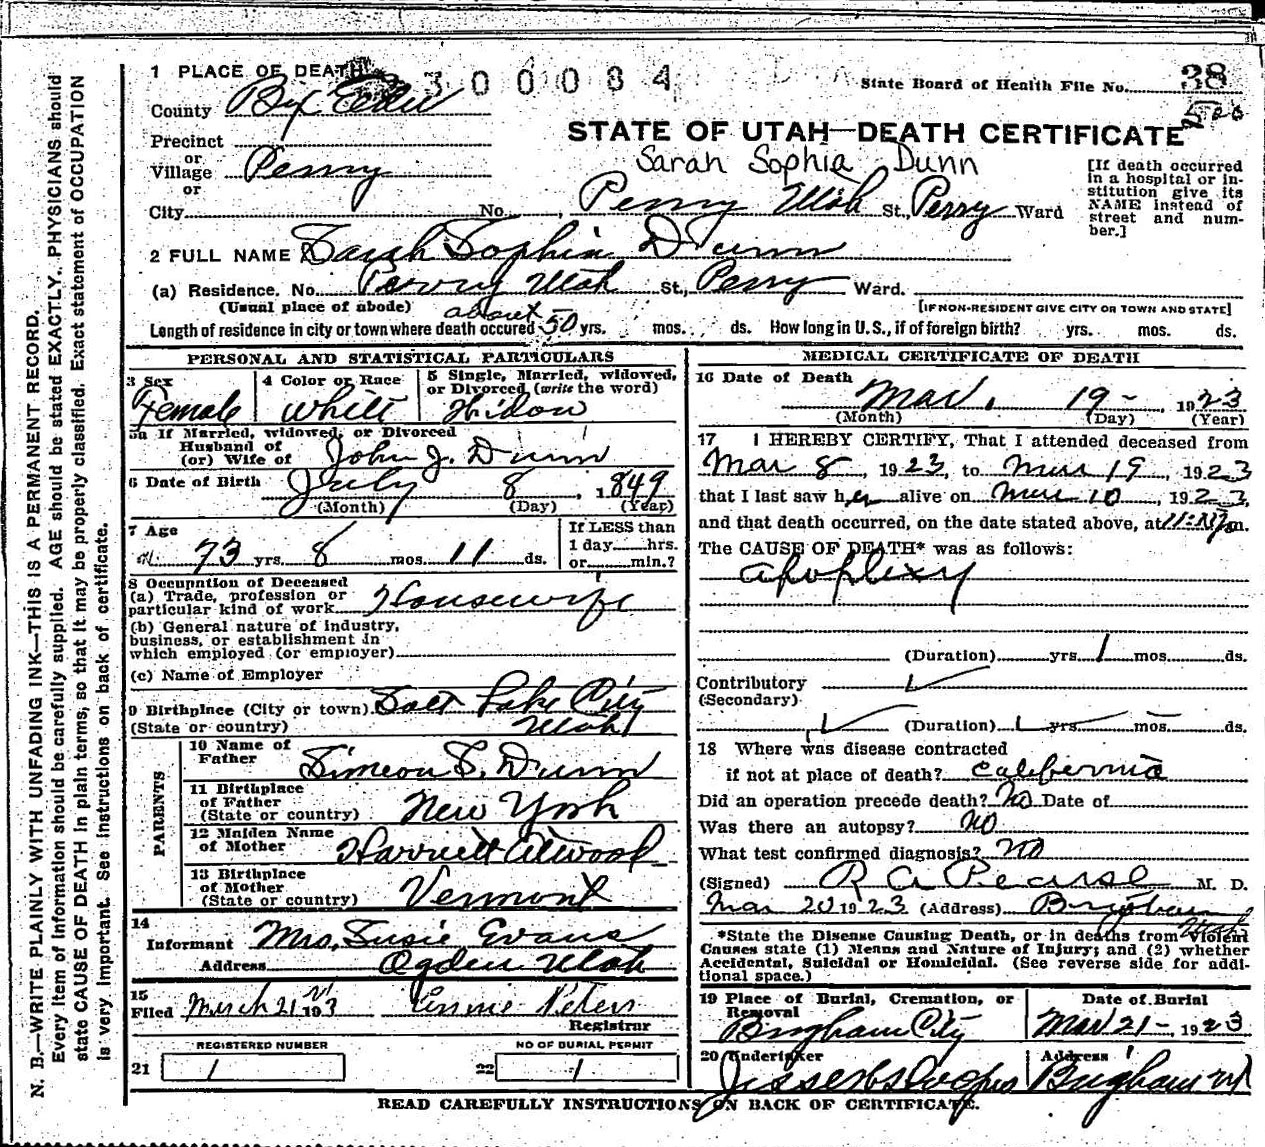 1 PLACE OF DEATH 300084
State Board of Health File No. 38
County Box Elder
STATE OF UTAH—DEATH CERTIFICATE
Precinct
or
Village Perry
or
Sarah Sophia Dunn
City No. Perry Utah St., Perry Ward
[If death occurred in a hospital or in-
stitution give its
NAME instead of
street and num-
ber.]
2 FULL NAME Sarah Sophia Dunn
(a) Residence. No. Perry Utah St., Perry Ward.
(Usual place of abode) [IF NON-RESIDENT GIVE CITY OR TOWN AND STATE]
Length of residence in city or town where death occured about 50 yrs. mos. ds. How long in U.S., if of foreign birth? yrs. mos. ds.
PERSONAL AND STATISTICAL PARTICULARS
3 Sex Female
4 Color or Race White
5 Single, Married, widowed,
or Divorced (write the word)
Widow
5a If Married, widowed, or Divorced
Husband of
(or) Wife of John J. Dunn
6 Date of Birth July 8, 1849
(Month) (Day) (Year)
7 Age
73 yrs. 8 mos. 11 ds.
If LESS than
1 day hrs.
or min.?
8 Occupation of Deceased
(a) Trade, profession or
particular kind of work Housewife
(b) General nature of industry,
business, or establishment in
which employed (or employer)
(c) Name of Employer
9 Birthplace (City or town) Salt Lake City
(State or country) Utah
PARENTS
10 Name of
Father Simeon S. Dunn
11 Birthplace
of Father
(State or country) New York
12 Maiden Name
of Mother Harriett Atwood
13 Birthplace
of Mother
(State or country) Vermont
14
Informant Mrs. Susie Evans
Address Ogden Utah
15
Filed March 21 1923 Peters
Registrar
REGISTERED NUMBER
21 1
NO OF BURIAL PERMIT
22 1
MEDICAL CERTIFICATE OF DEATH
16 Date of Death
Mar. 19-, 1923
(Month) (Day) (Year)
17 I HEREBY CERTIFY, That I attended deceased from
Mar 8, 1923, to Mar 19, 1923
that I last saw her alive on Mar 10, 1923,
and that death occurred, on the date stated above, at m.
The CAUSE OF DEATH* was as follows:
apoplexy
(Duration) yrs. 1 mos. ds.
Contributory
(Secondary)
(Duration) yrs. mos. ds.
18 Where was disease contracted
if not at place of death? California
Did an operation precede death? No Date of
Was there an autopsy? No
What test confirmed diagnosis? No
(Signed) R A Pearse M. D.
Mar 20 1923 (Address) Brigham
Utah
*State the Disease Causing Death, or in deaths from Violent
Causes state (1) Menns and Nature of Injury; and (2) whether
Accidental, Suicidal or Homicidal. (See reverse side for addi-
tional space.)
19 Place of Burial, Cremation, or
Removal
Brigham City
Date of Burial
Mar 21-, 1923
20 Undertaker
Address
Brigham Ut
READ CAREFULLY INSTRUCTIONS ON BACK OF CERTIFICATE.
N. B.—WRITE PLAINLY WITH UNFADING INK—THIS IS A PERMANENT RECORD.
Every item of information should be carefully supplied. AGE should be stated EXACTLY. PHYSICIANS should
state CAUSE OF DEATH in plain terms, so that it may be properly classified. Exact statement of OCCUPATION
is very important. See instructions on back of certificate.